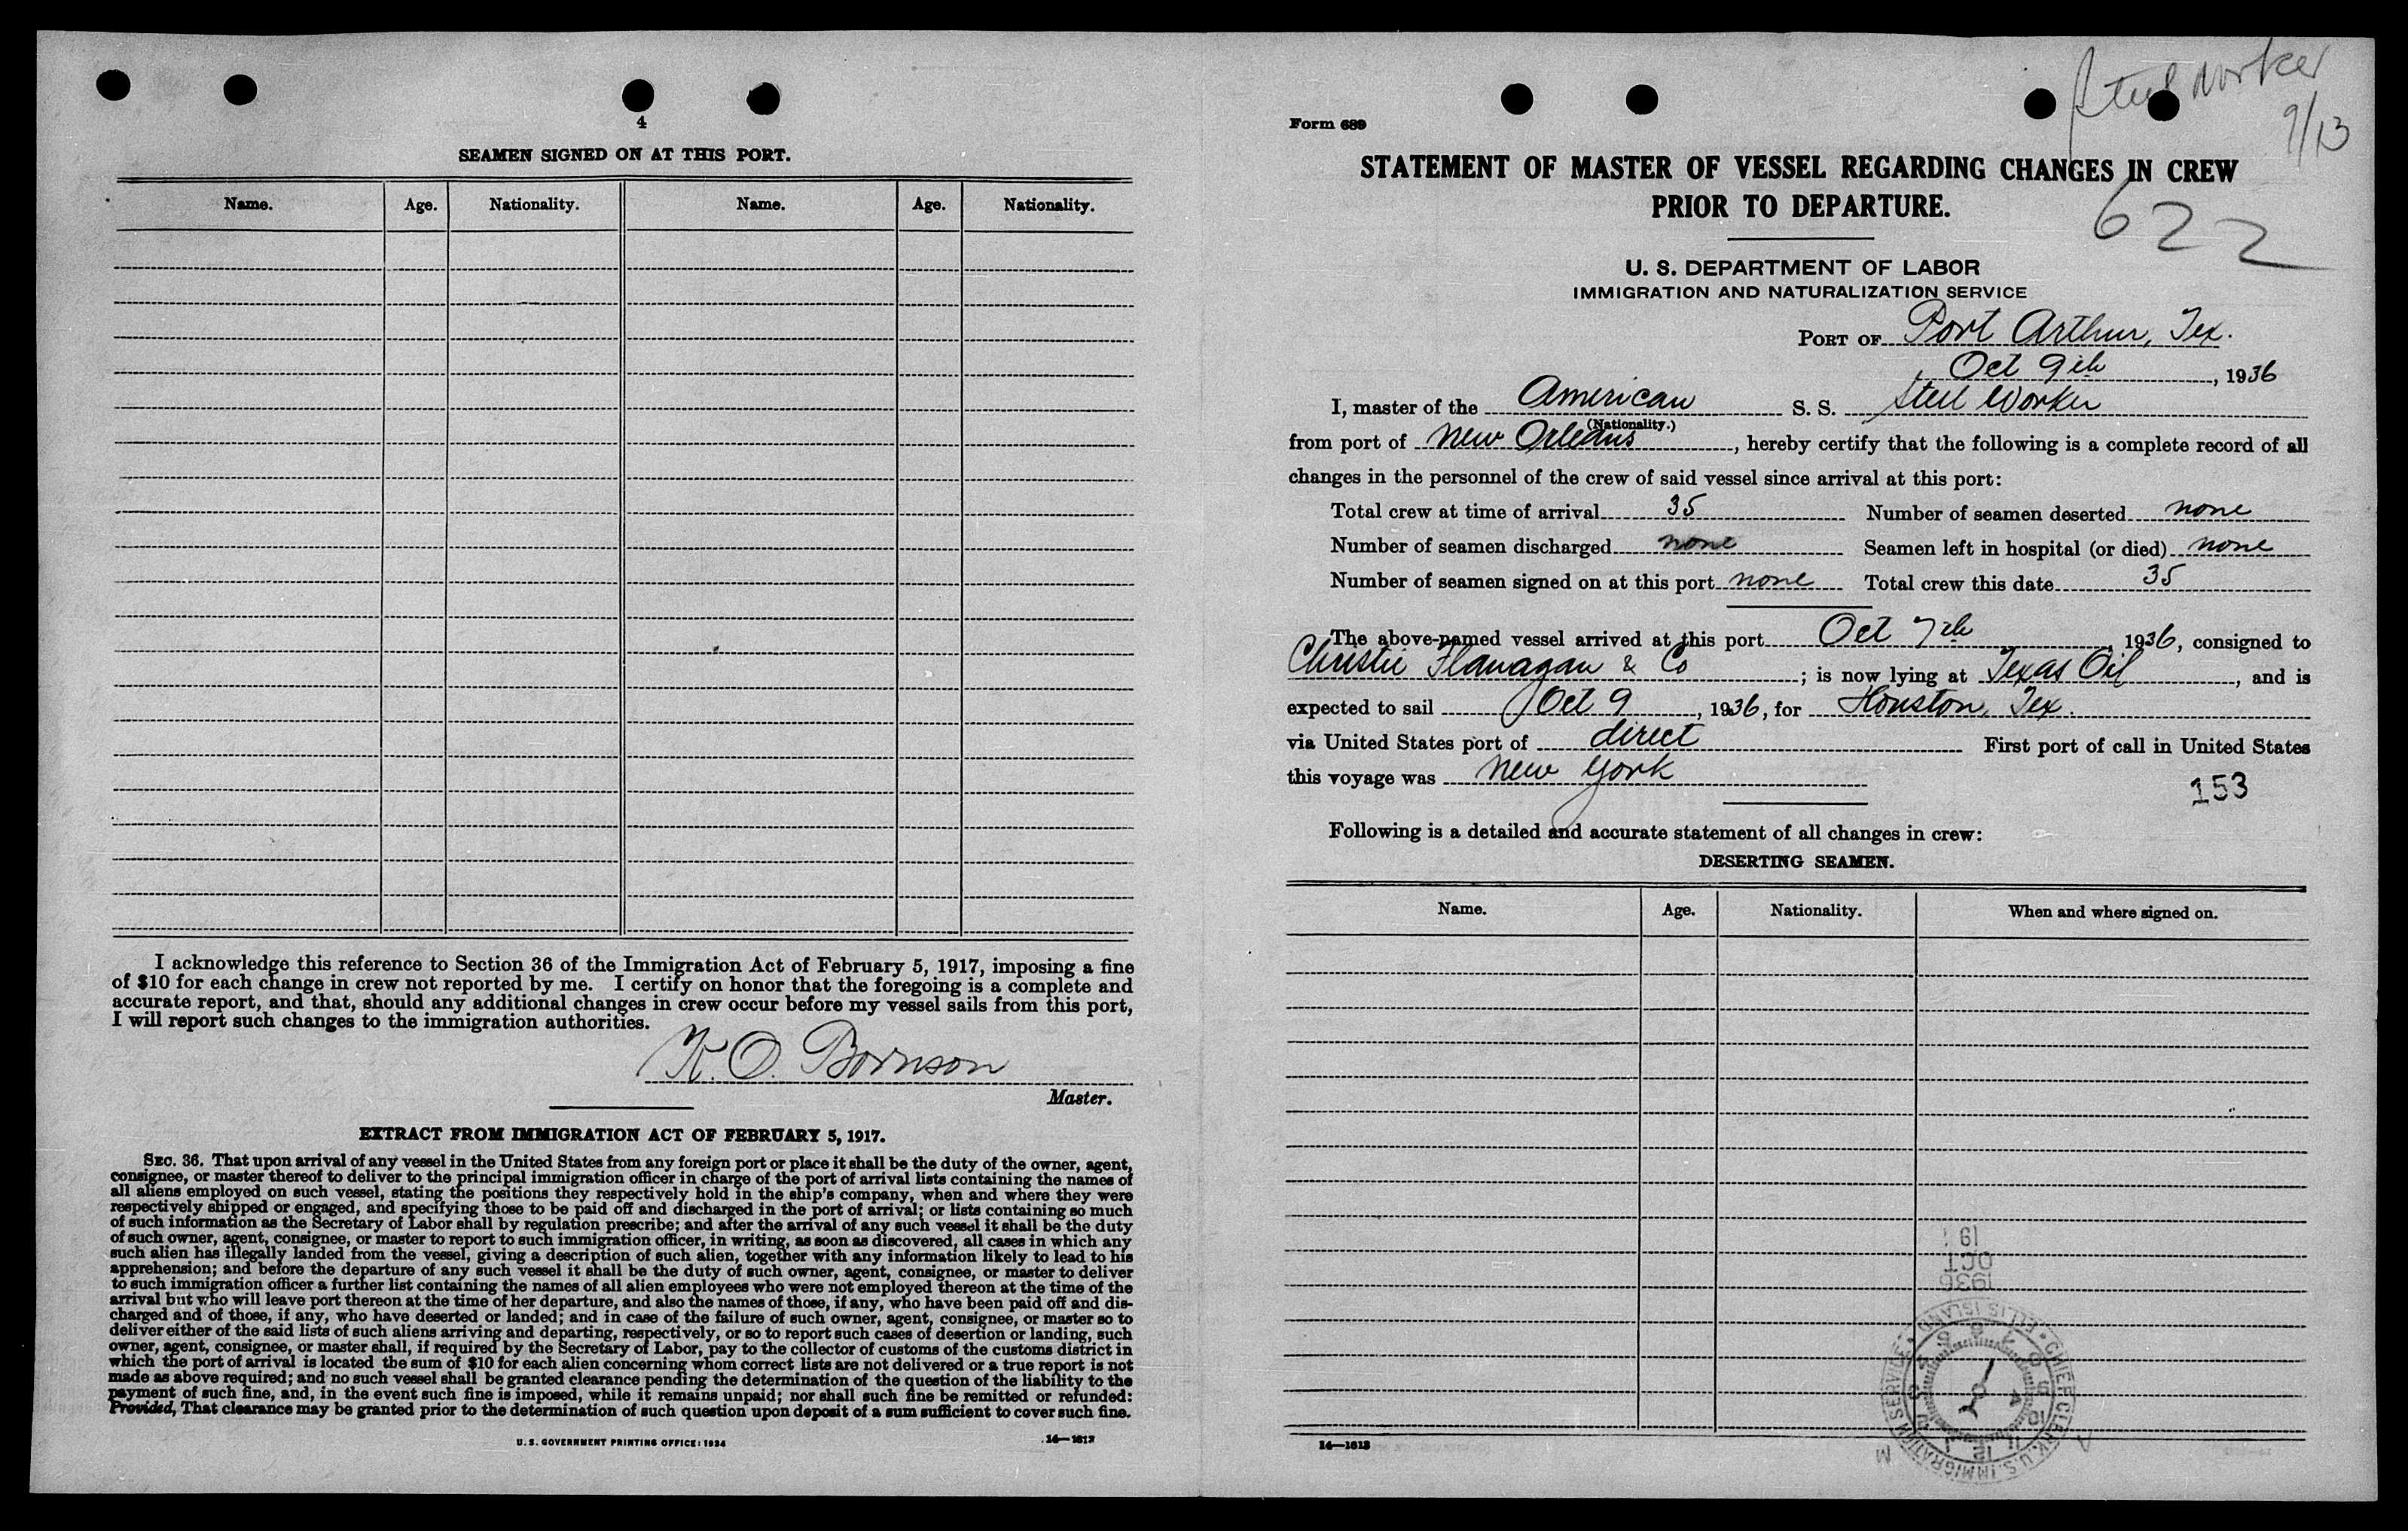 4
SEAMEN SIGNED ON AT THIS PORT.
Name. Age. Nationality. Name. Age. Nationality.
I acknowledge this reference to Section 36 of the Immigration Act of February 5, 1917, imposing a fine
of $10 for each change in crew not reported by me. I certify on honor that the foregoing is a complete and
accurate report, and that, should any additional changes in crew occur before my vessel sails from this port,
I will report such changes to the immigration authorities.
K. O. Bornson
Master.
EXTRACT FROM IMMIGRATION ACT OF FEBRUARY 5, 1917.
SEC. 36. That upon arrival of any vessel in the United States from any foreign port or place it shall be the duty of the owner, agent,
consignee, or master thereof to deliver to the principal immigration officer in charge of the port of arrival lists containing the names of
all aliens employed on such vessel, stating the positions they respectively hold in the ship's company, when and where they were
respectively shipped or engaged, and specifying those to be paid off and discharged in the port of arrival; or lists containing so much
of such information as the Secretary of Labor shall by regulation prescribe; and after the arrival of any such vessel it shall be the duty
of such owner, agent, consignee, or master to report to such immigration officer, in writing, as soon as discovered, all cases in which any
such alien has illegally landed from the vessel, giving a description of such alien, together with any information likely to lead to his
apprehension; and before the departure of any such vessel it shall be the duty of such owner, agent, consignee, or master to deliver
to such immigration officer a further list containing the names of all alien employees who were not employed thereon at the time of the
arrival but who will leave port thereon at the time of her departure, and also the names of those, if any, who have been paid off and dis-
charged and of those, if any, who have deserted or landed; and in case of the failure of such owner, agent, consignee, or master so to
deliver either of the said lists of such aliens arriving and departing, respectively, or so to report such cases of desertion or landing, such
owner, agent, consignee, or master shall, if required by the Secretary of Labor, pay to the collector of customs of the customs district in
which the port of arrival is located the sum of $10 for each alien concerning whom correct lists are not delivered or a true report is not
made as above required; and no such vessel shall be granted clearance pending the determination of the question of the liability to the
payment of such fine, and, in the event such fine is imposed, while it remains unpaid; nor shall such fine be remitted or refunded:
Provided, That clearance may be granted prior to the determination of such question upon deposit of a sum sufficient to cover such fine.
U. S. GOVERNMENT PRINTING OFFICE: 1934 14—1613
Steel Worker
9/13
Form 689
STATEMENT OF MASTER OF VESSEL REGARDING CHANGES IN CREW
PRIOR TO DEPARTURE.
622
U. S. DEPARTMENT OF LABOR
IMMIGRATION AND NATURALIZATION SERVICE
PORT OF Port Arthur, Tex.
Oct 9th, 1936
I, master of the American S. S. Steel Worker
(Nationality.)
from port of New Orleans, hereby certify that the following is a complete record of all
changes in the personnel of the crew of said vessel since arrival at this port:
Total crew at time of arrival 35 Number of seamen deserted none
Number of seamen discharged none Seamen left in hospital (or died) none
Number of seamen signed on at this port none Total crew this date 35
The above-named vessel arrived at this port Oct 7th, 1936, consigned to
Christie Flanagan & Co; is now lying at Texas Oil, and is
expected to sail Oct 9, 1936, for Houston, Tex.
via United States port of direct First port of call in United States
this voyage was New York
153
Following is a detailed and accurate statement of all changes in crew:
DESERTING SEAMEN.
Name. Age. Nationality. When and where signed on.
OCT
1936
CHIEF CLERK, U.S. IMMIGRATION SERVICE • ELLIS ISLAND
14—1613